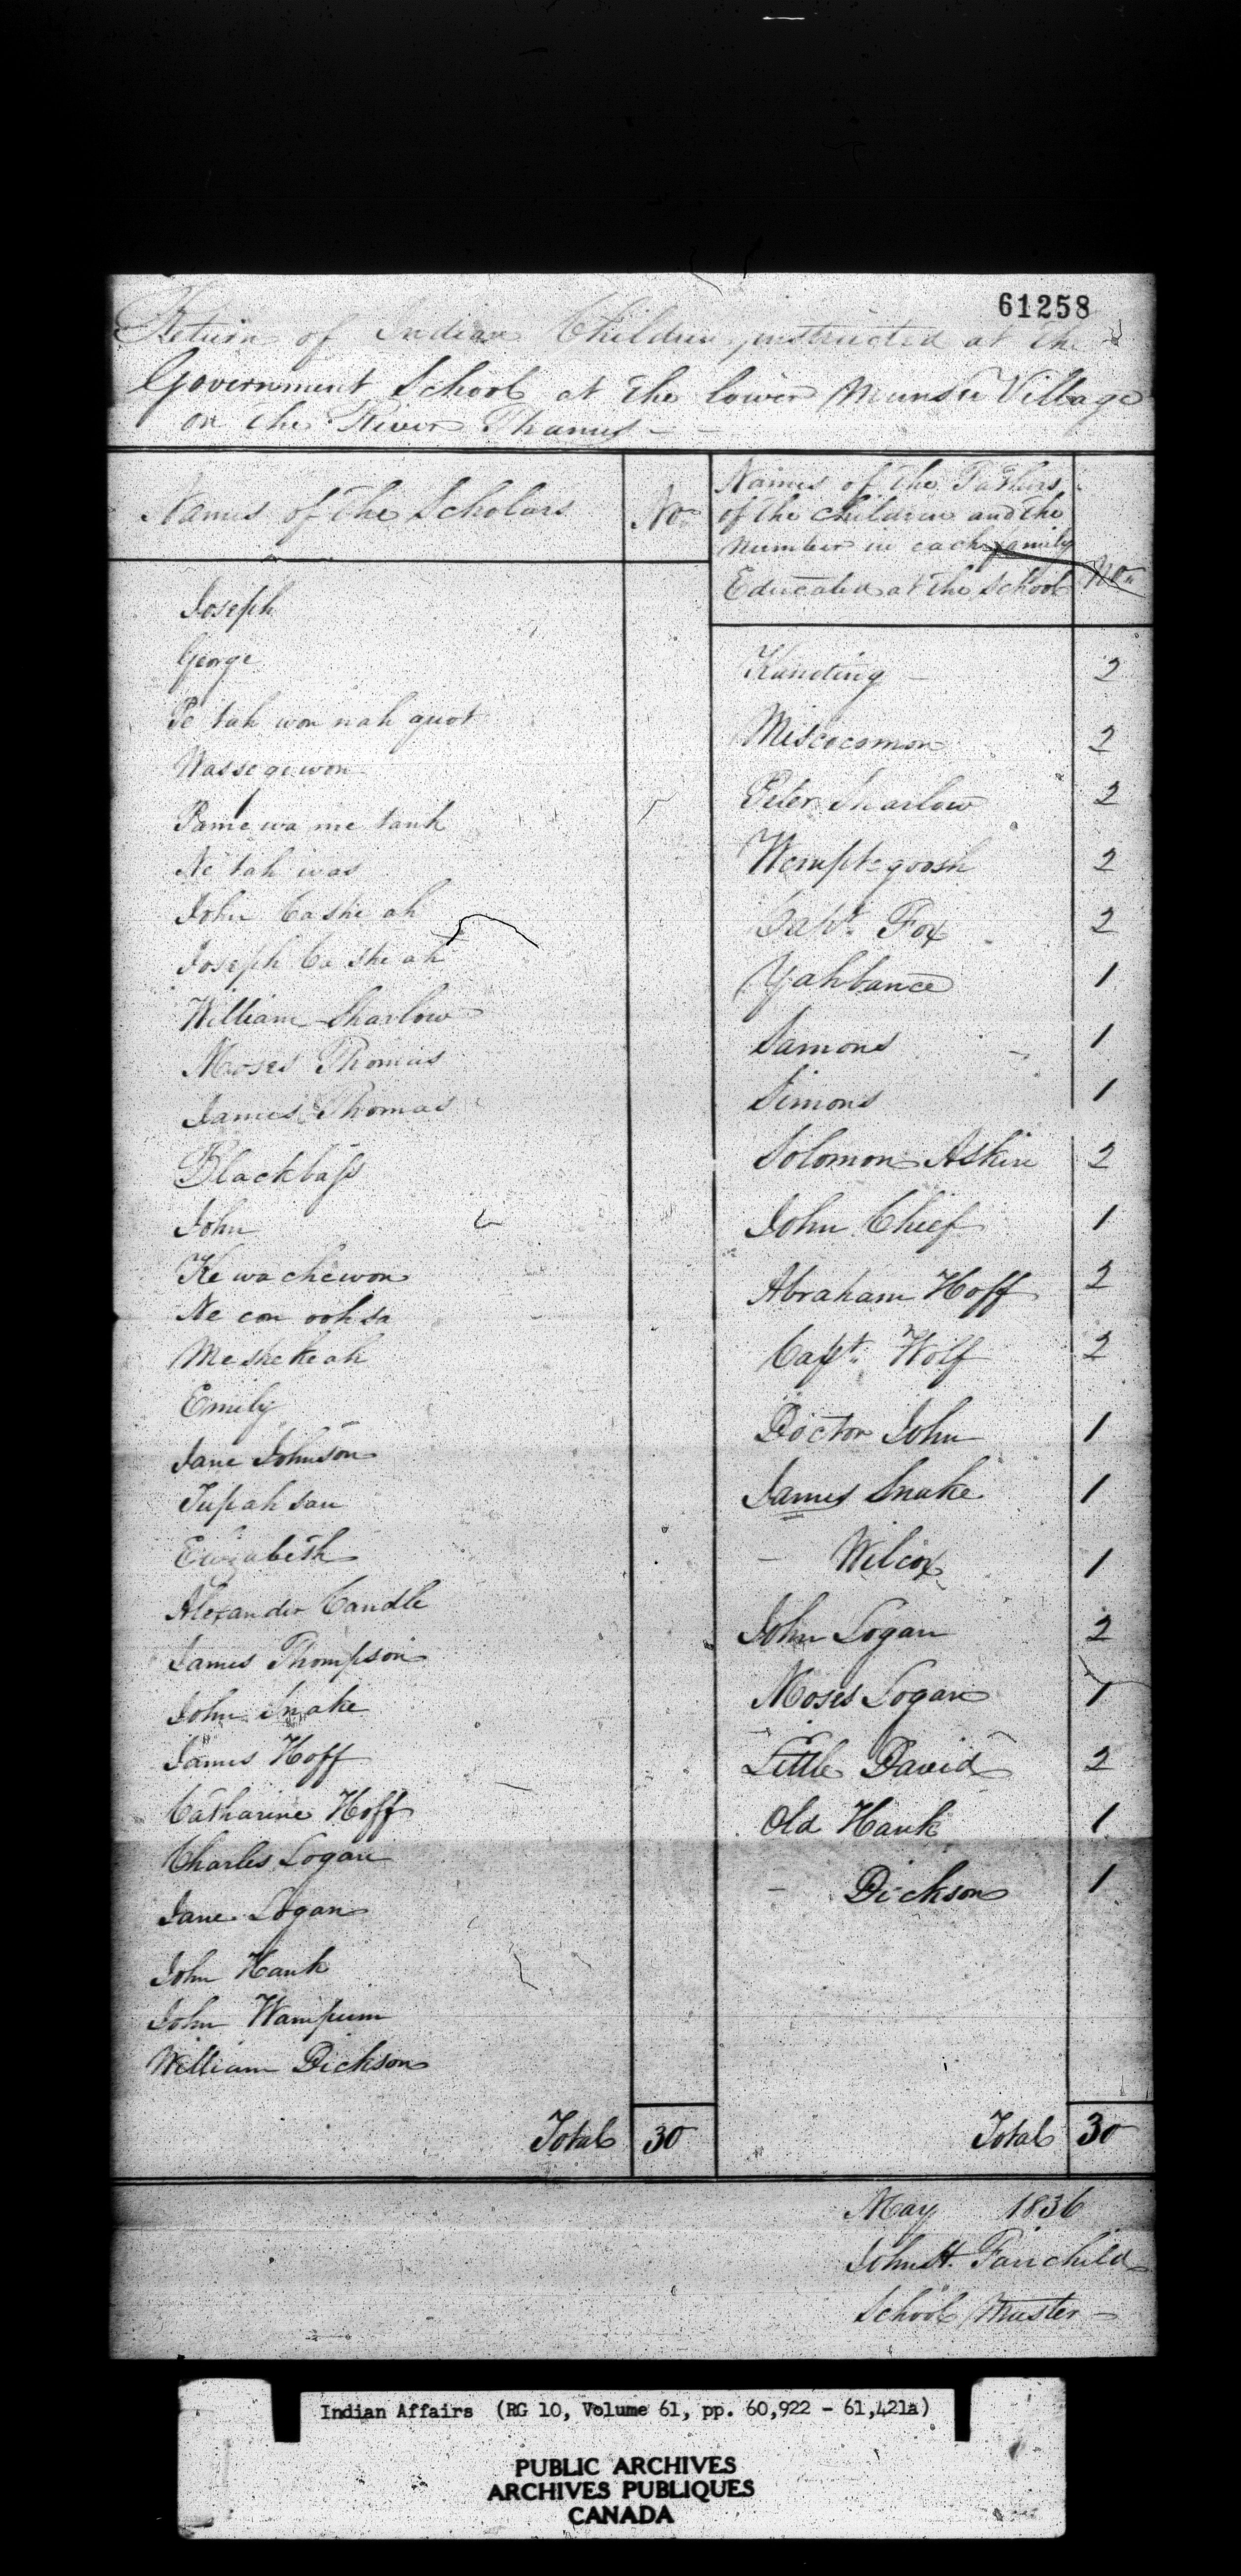 61258
Return of Indian Children instructed at the
Government School at the lower Munsee Village
on the River Thames
Names of the Scholars
No
Joseph
George
Pe tah won nah quot
Wassegewon
Pame wa me tank
Ne tah was
John Ca she ah
Joseph Ca she ah
William Sharlow
Moses Thomas
James Thomas
Blackbass
John
Ke wa chewon
Ne con ooh sa
Me she ke ah
Emily
Jane Johnson
Tupah sau
Elizabeth
Alexander Caudle
James Thompson
John Snake
James Hoff
Catharine Hoff
Charles Logan
Jane Logan
John Hank
John Wampum
William Dickson
Total 30
Names of the Fathers
of the children and the
number in each family
Educated at the School
No
Kanoting 2
Miscocomon 2
Peter Sharlow 2
Wemptegoosh 2
Capt. Fox 2
Yahbance 1
Samons 1
Simons 1
Solomon Askin 2
John Chief 1
Abraham Hoff 2
Capt. Wolf 2
Doctor John 1
James Snake 1
- Wilcox 1
John Logan 2
Moses Logan 1
Little David 2
Old Hank 1
- Dickson 1
Total 30
May 1836
John H. Fairchild
School Master
Indian Affairs (RG 10, Volume 61, pp. 60,922 - 61,421a)
PUBLIC ARCHIVES
ARCHIVES PUBLIQUES
CANADA